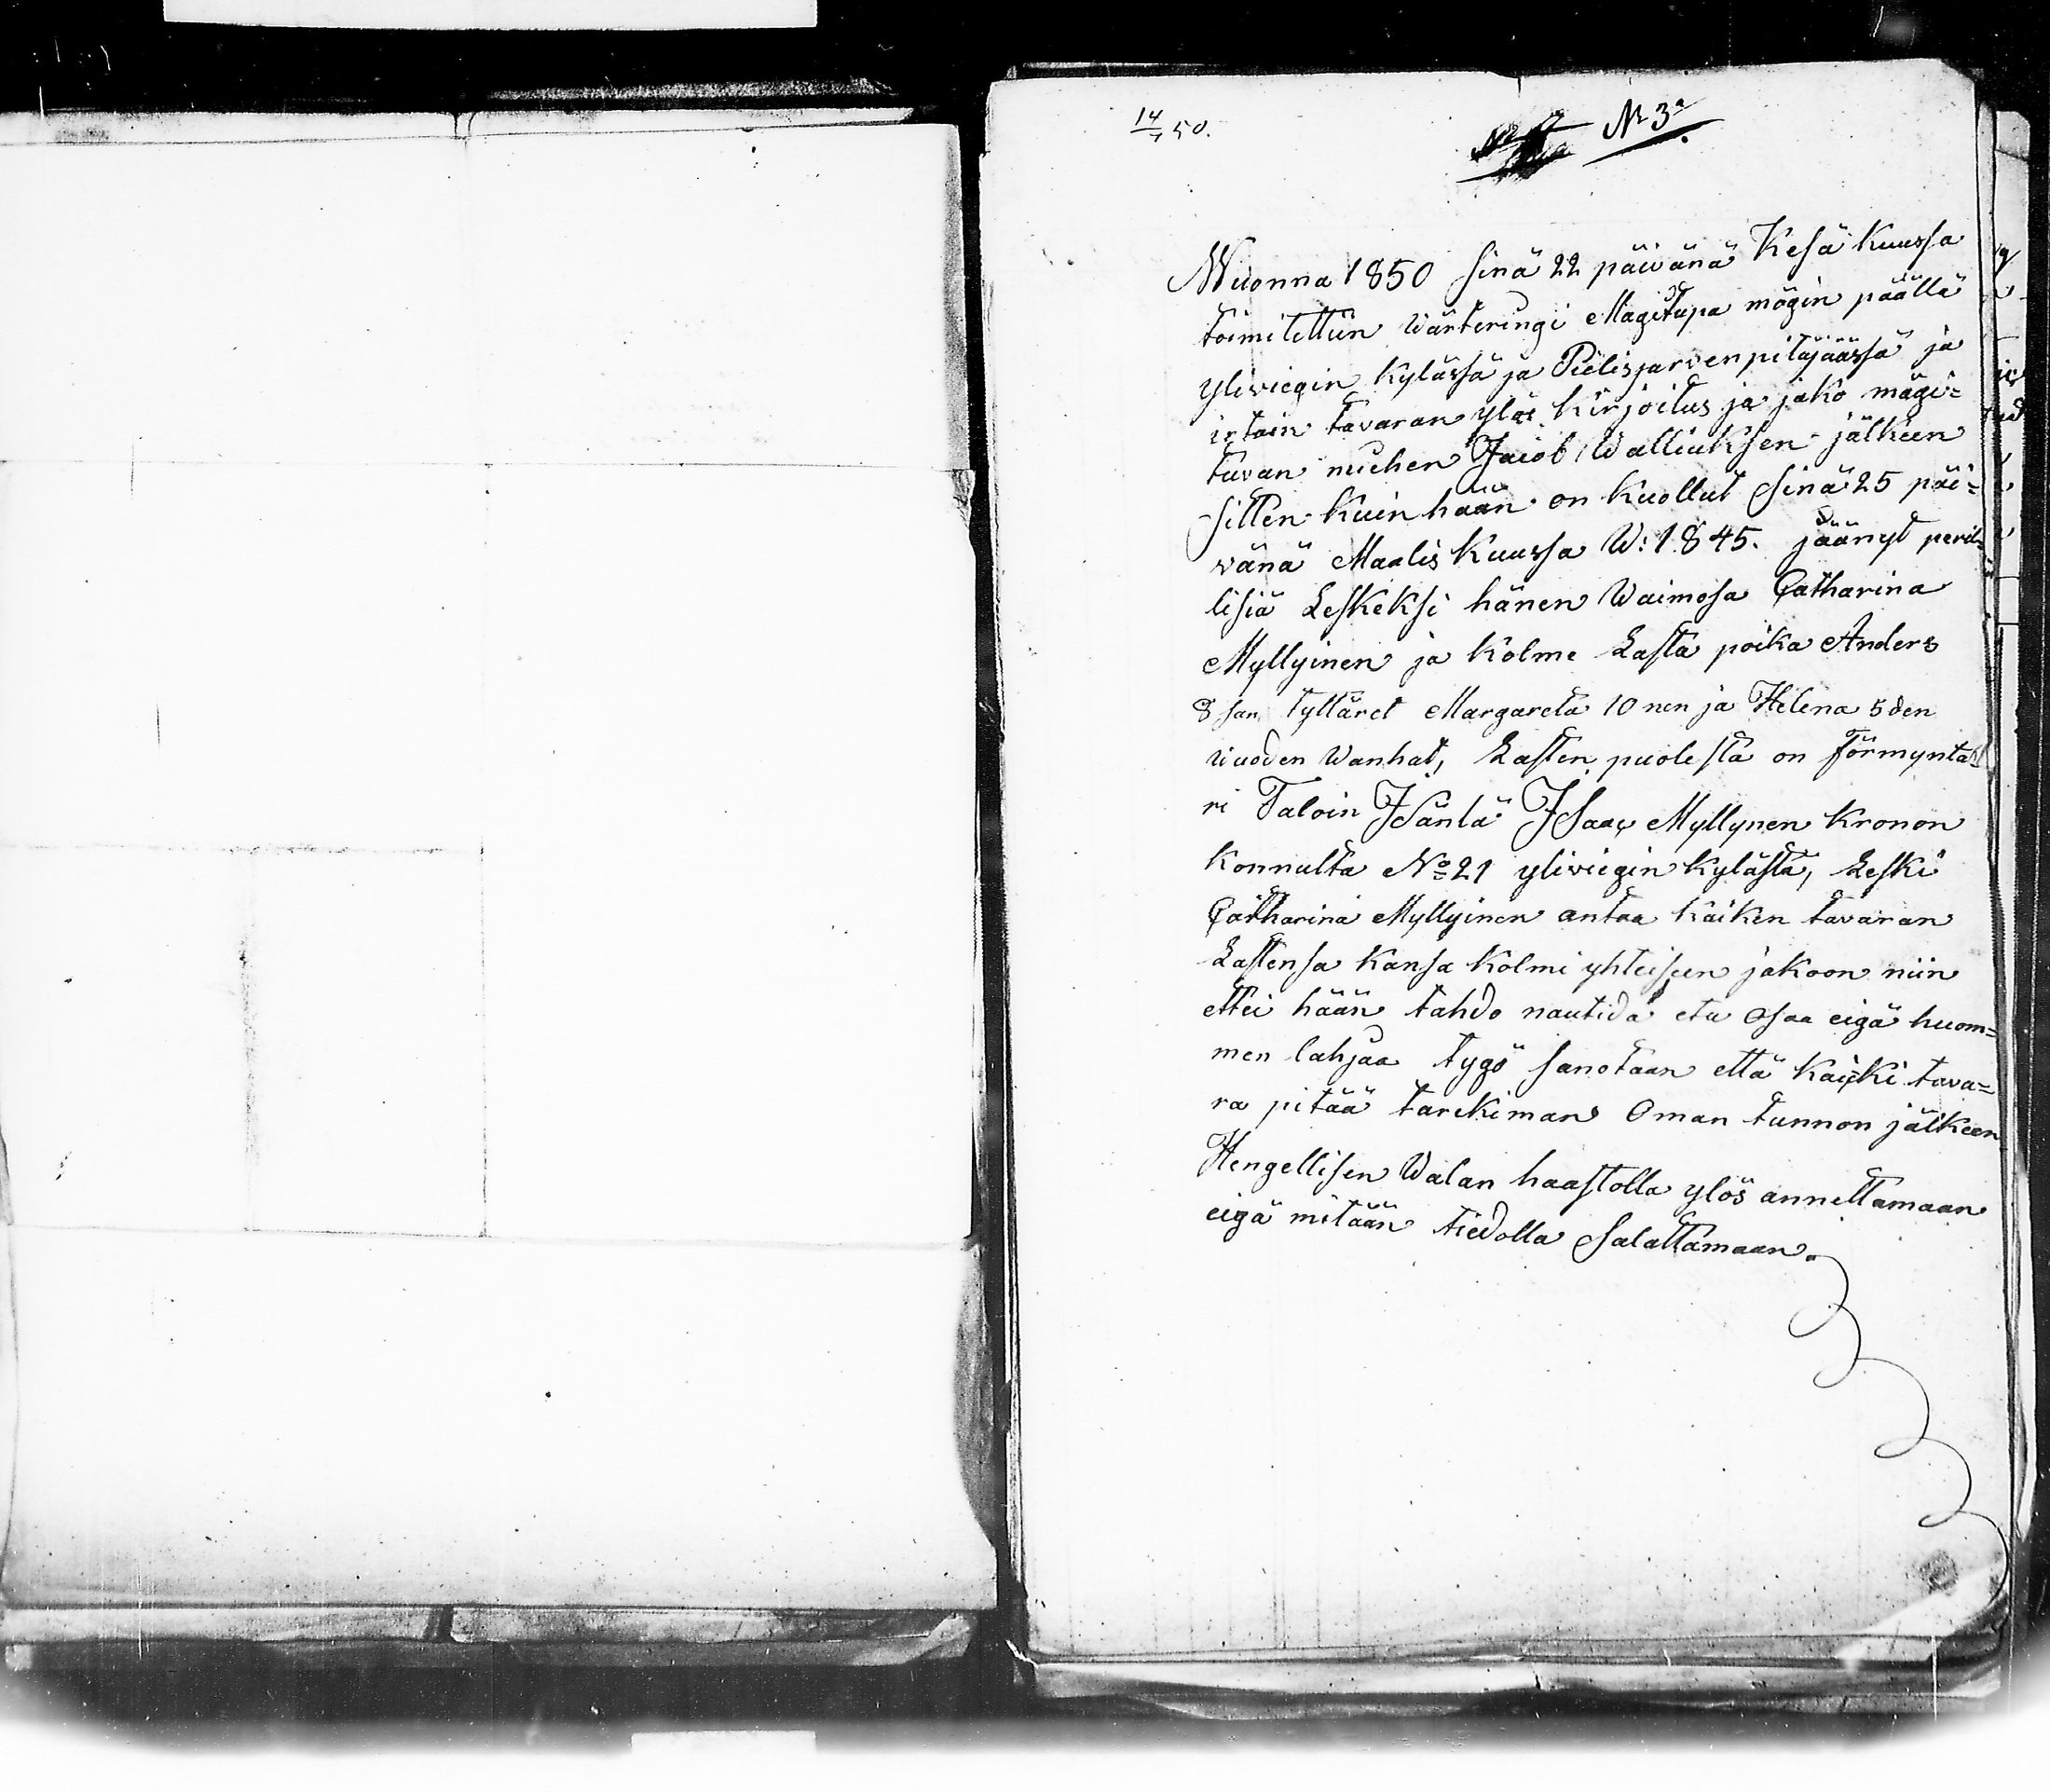 14/7 50.
No 3a
Wuonna 1850 sinä 22 päivänä Kesä kuussa
toimitettiin wärteringi Mägitupa mägin päällä
yliviegin kylässä ja Pielisjarven pitäjäässä ja
irtain tavaran ylös kirjoitus ja jako mägi=
tuvan miehen Jacob Walliuksen jälkeen
sitten kuin hään on kuollut sinä 25 päi=
vänä Maalis kuussa W: 1845. jäänyt peril=
lisiä Leskeksi hänen Waimosa Catharina
Myllyinen ja kolme Lasta poika Anders
8 san tyttäret Margareta 10 nen ja Helena 5 den
vuoden Wanhat, Lasten puolesta on förmyntä
ri Taloin Isäntä Isaac Myllynen Kronon
konnulta No 21 yliviegin kylästä, Leski
Catharina Myllyinen antaa kaiken tavaran
Lastensa kansa kolmi yhteiseen jakoon niin
ettei hään tahdo nautida etu osaa eigä huom=
men lahjaa tygö sanotaan että kaicki tava=
ra pitää tarckiman Oman tunnon jälkeen
Hengellisen Walan haastolla ylös annettamaan
eigä mitään tiedolla salattamaan.